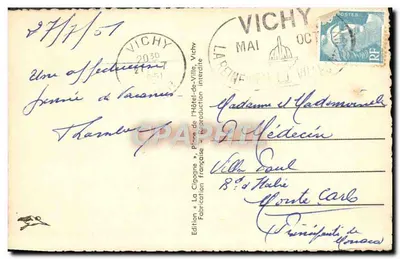 27/7/51
Une affectueuse
pensée de vacances
VICHY
20 30
1951
VICHY
MAI OCT
LA
POSTES
RF
Edition « La Cigogne », Place de l'Hôtel-de-Ville, Vichy
Fabrication Française - Reproduction interdite
CPARAMA
Madame et Mademoiselle
Médecin
Villa Paul
Bd d'Italie
Monte Carlo
Principauté de
Monaco